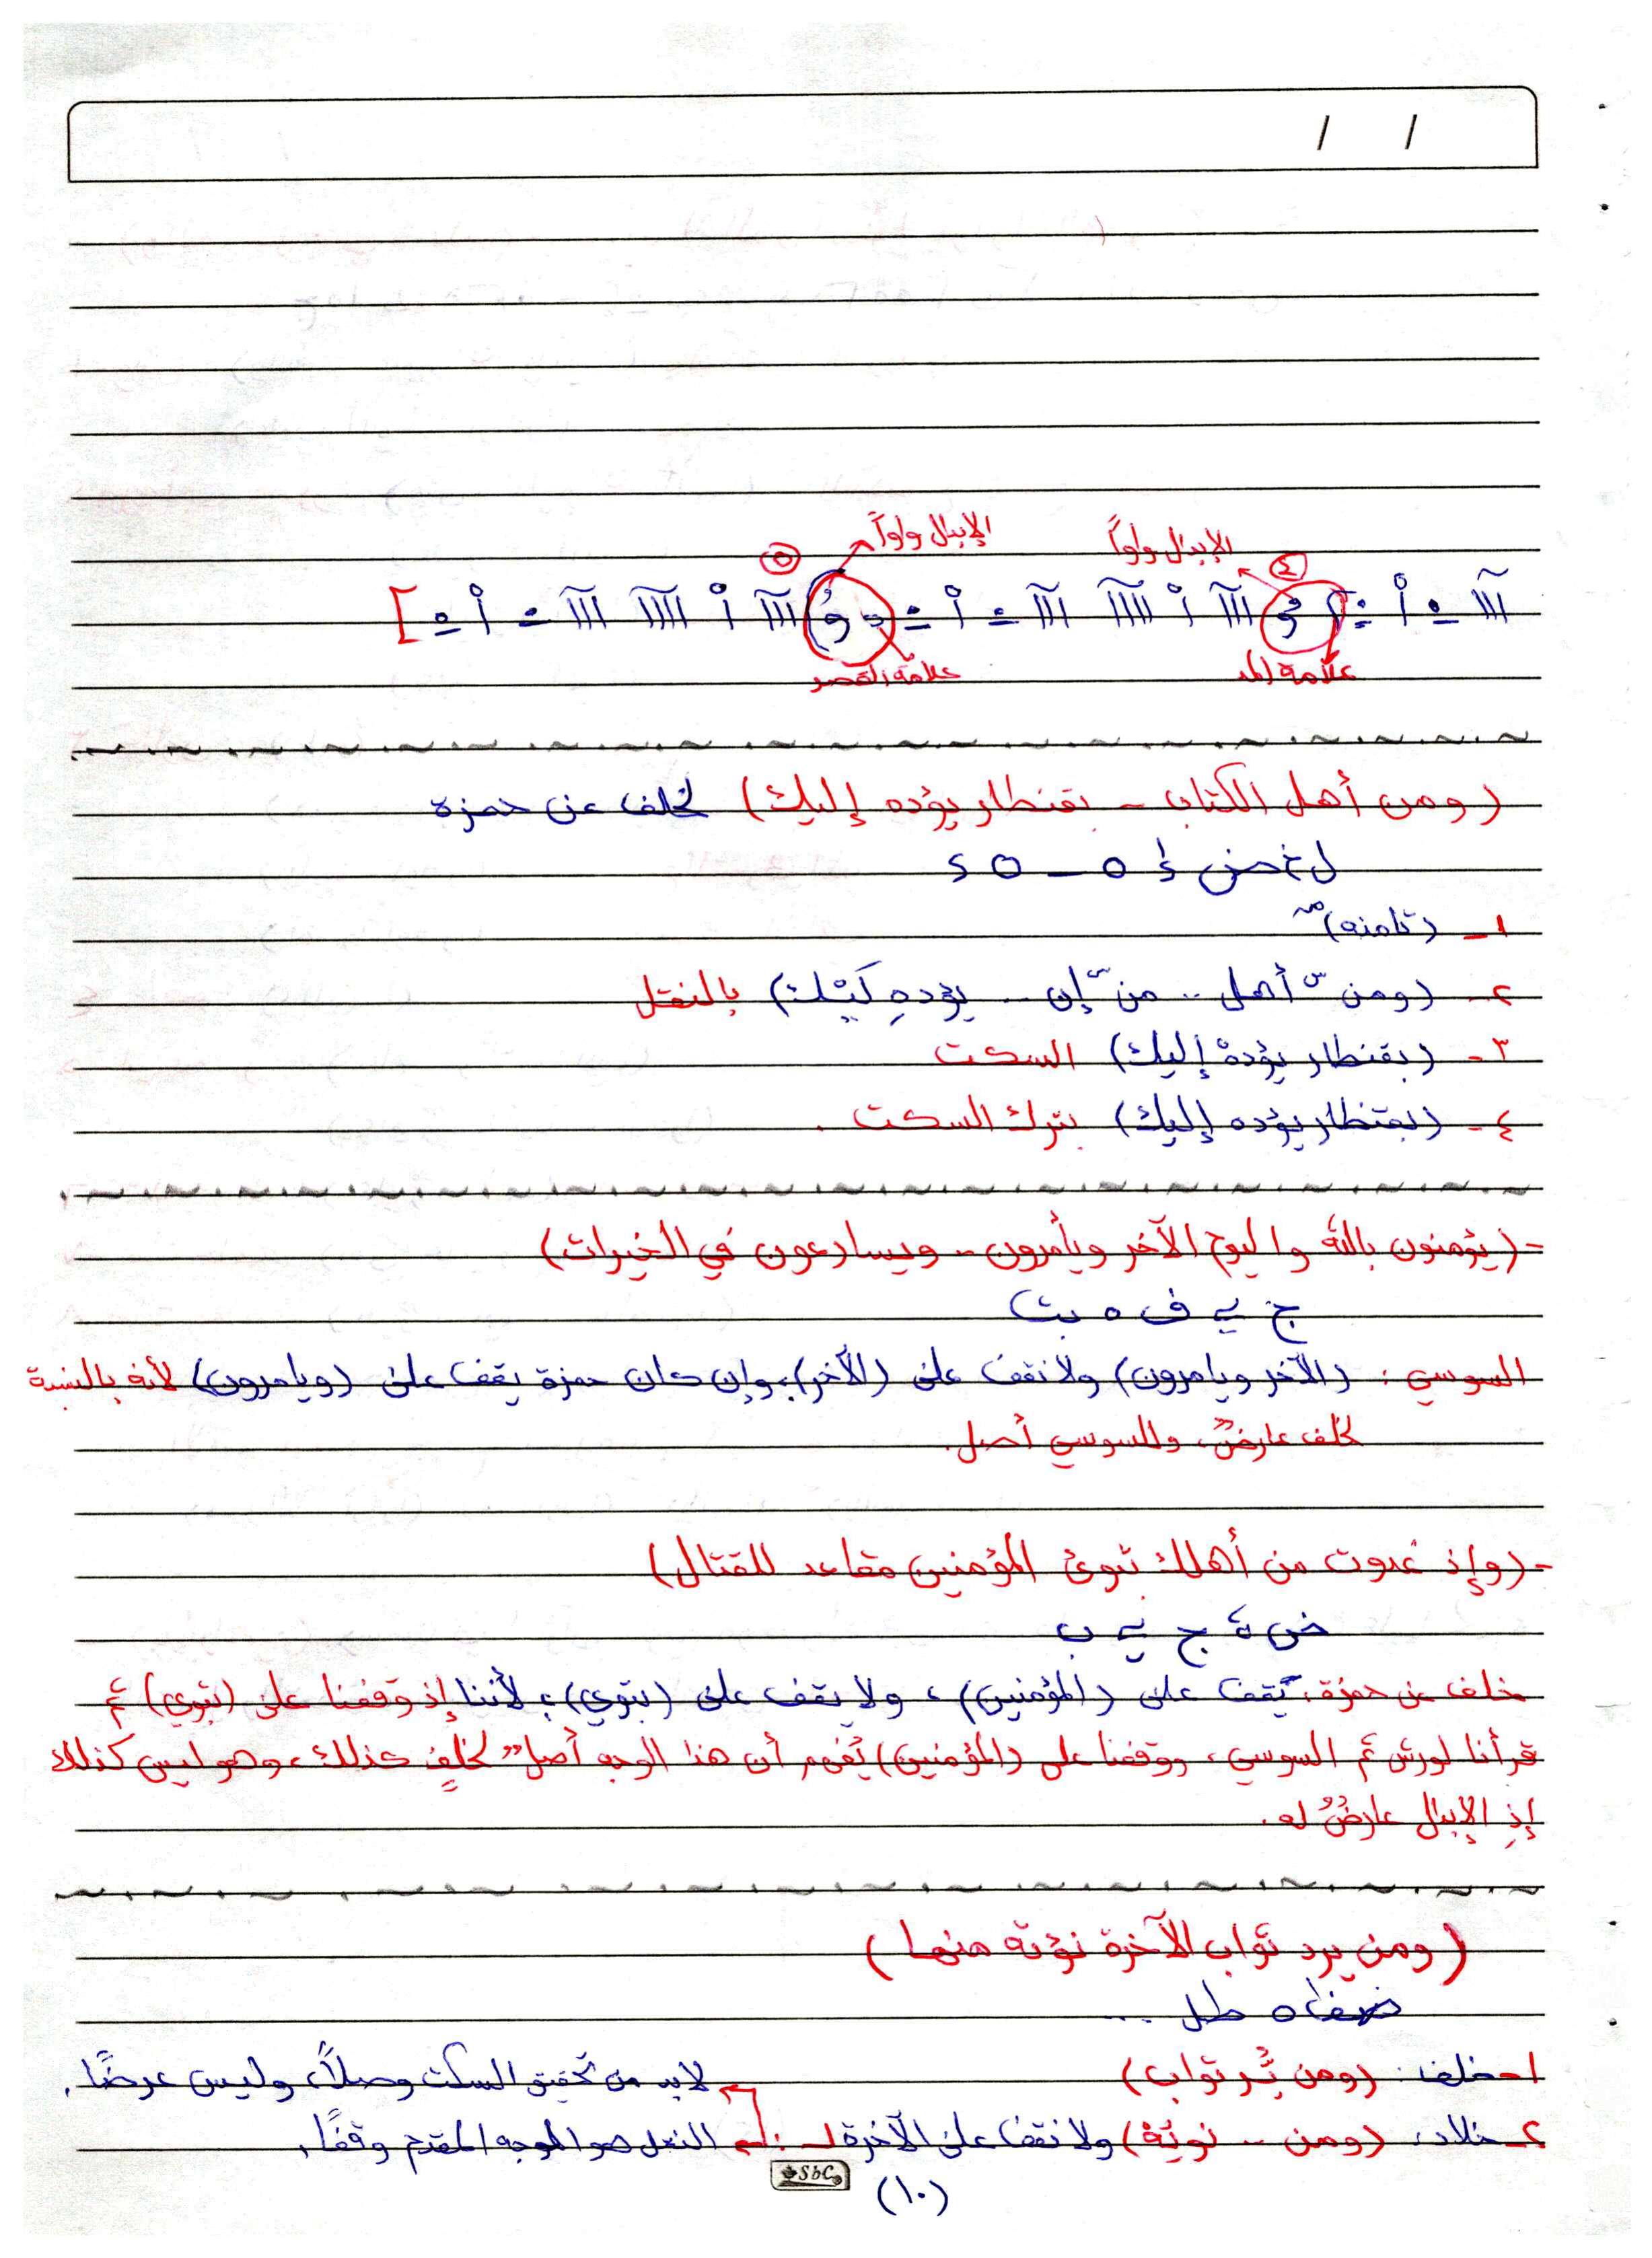 / /
الإبدال واواً
الإبدال واواً
٤
٥
علامة المد
علامة القصر
(ومن أهل الكتاب - بقنطار يؤده إليك) لخلف عن حمزة
١- (تامنه)
٢- (ومن س أهل .. من س إن .. يؤدهِ لَيْك) بالنقل
٣- (بقنطار يؤدهْ إليك) السكت
٤- (بقنطار يؤده إليك) بترك السكت .
- (يؤمنون بالله واليوم الآخر ويأمرون .. ويسارعون في الخيرات)
ج ي ف ه ث
السوسي : (الآخر ويامرون) ولا نقف على (الآخر)، وإن كان حمزة يقف على (ويامرون) لأنه بالنسبة
لخلف عارضٌ، وللسوسي أصل.
- (وإذ غدوت من أهلك تبوئ المؤمنين مقاعد للقتال)
خلف عن حمزة: يقف على (المؤمنين)، ولا يقف على (تبوي)؛ لأننا إذ وقفنا على (تبوي) ثم
قرأنا لورش ثم السوسي، ووقفنا على (المؤمنين) يُفهم أن هذا الوجه أصلٌ لخلفٍ كذلك، وهو ليس كذلك
إذِ الإبدال عارضٌ له.
(ومن يرد ثواب الآخرة نؤته منها)
١- خلف: (ومن يُرد ثواب) لابد من تحقيق السكت وصلاً، وليس عرضًا.
٢- خلاد: (ومن .. نوته) ولا نقف على الآخرة لـ : النقل هو الوجه المقدم وقفًا.
SbC
(١٠)